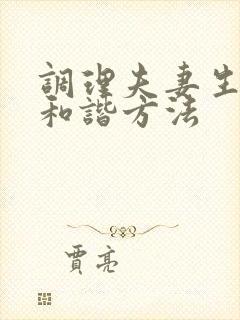 調理夫妻生
和諧方法
賈亮